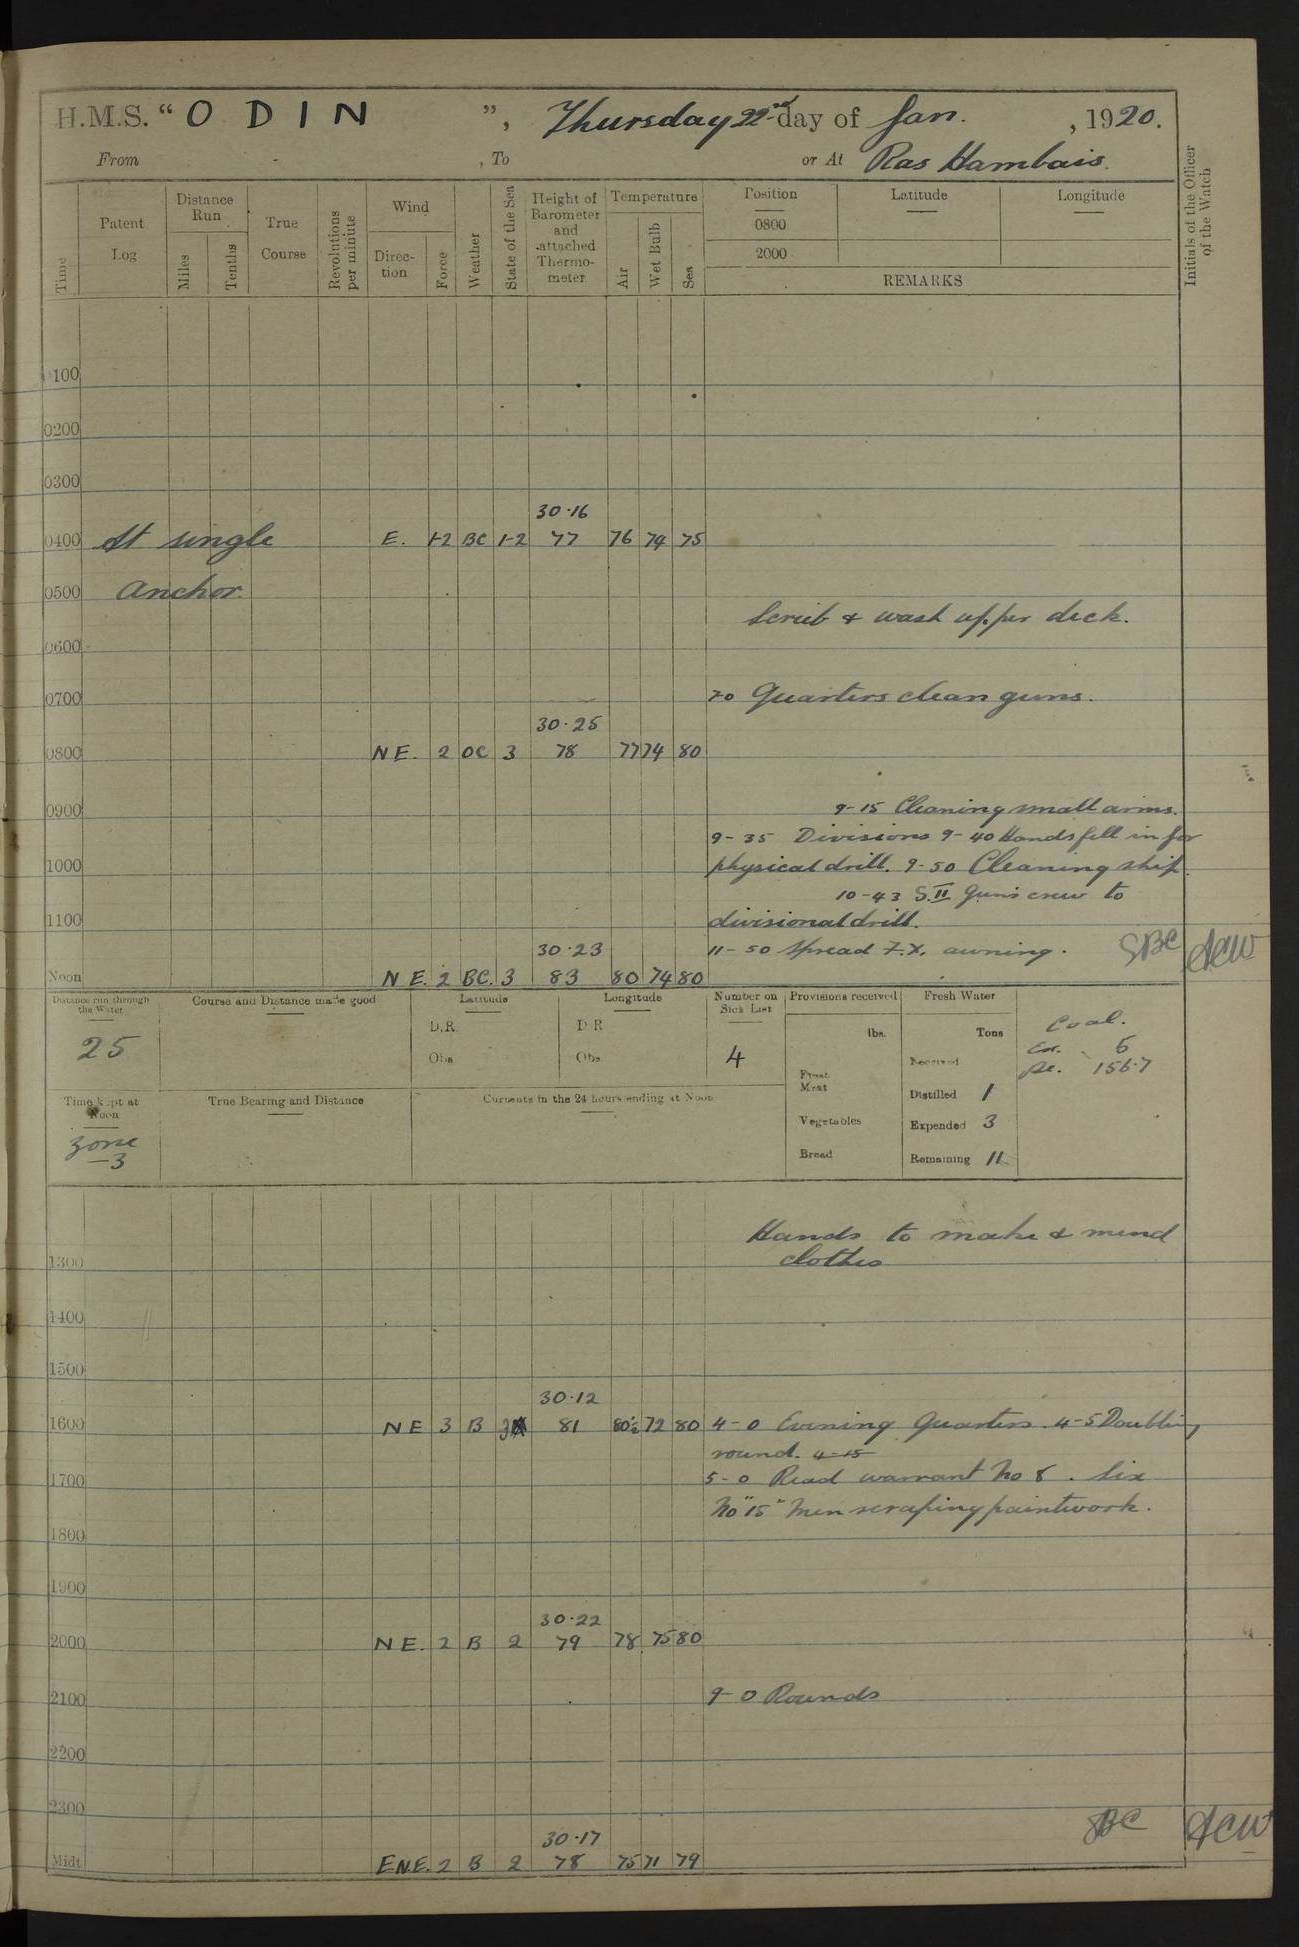 H.M.S. "ODIN", Thursday 22nd day of Jan. , 1920.
From , To or At Ras Hambais.
Time
Patent Log
Distance Run
Miles
Tenths
True Course
Revolutions per minute
Wind
Direction
Force
Weather
State of the Sea
Height of Barometer and attached Thermometer
Temperature
Air
Wet Bulb
Sea
Position
Latitude
Longitude
0800
2000
REMARKS
Initials of the Officer of the Watch
0100
0200
0300
30·16
0400 At single E. 1-2 BC 1-2 77 76 74 75
0500 anchor.
Scrub & wash upper deck.
0600
0700 7-0 Quarters clean guns.
30·25
0800 NE. 2 OC 3 78 77 74 80
0900 9-15 Cleaning small arms.
9-35 Divisions 9-40 Hands fell in for
1000 physical drill. 9-50 Cleaning ship.
10-43 S.II Gun's crew to
1100 divisional drill.
30·23 11-50 Spread F.X. awning. SBC ACW
Noon NE. 2 BC. 3 83 80 74 80
Distance run through the Water
25
Course and Distance made good
Latitude
D.R.
Obs
Longitude
D R
Obs
Number on Sick List
4
Provisions received
lbs.
Fresh Meat
Vegetables
Bread
Fresh Water
Tons
Received
Distilled 1
Expended 3
Remaining 11
Coal.
Ex. 6
Re. 156·7
Time kept at Noon
Zone -3
True Bearing and Distance
Currents in the 24 hours ending at Noon
Hands to make & mend
1300 clothes
1400
1500
30·12
1600 NE 3 B 3 81 80½ 72 80 4-0 Evening Quarters. 4-5 Doubling
round. 4-15
1700 5-0 Read warrant No 8. Six
No "15" Men scraping paintwork.
1800
1900
30·22
2000 NE. 2 B 2 79 78 75 80
2100 9-0 Rounds
2200
2300
30·17 SBC ACW
Midt ENE. 2 B 2 78 75 71 79